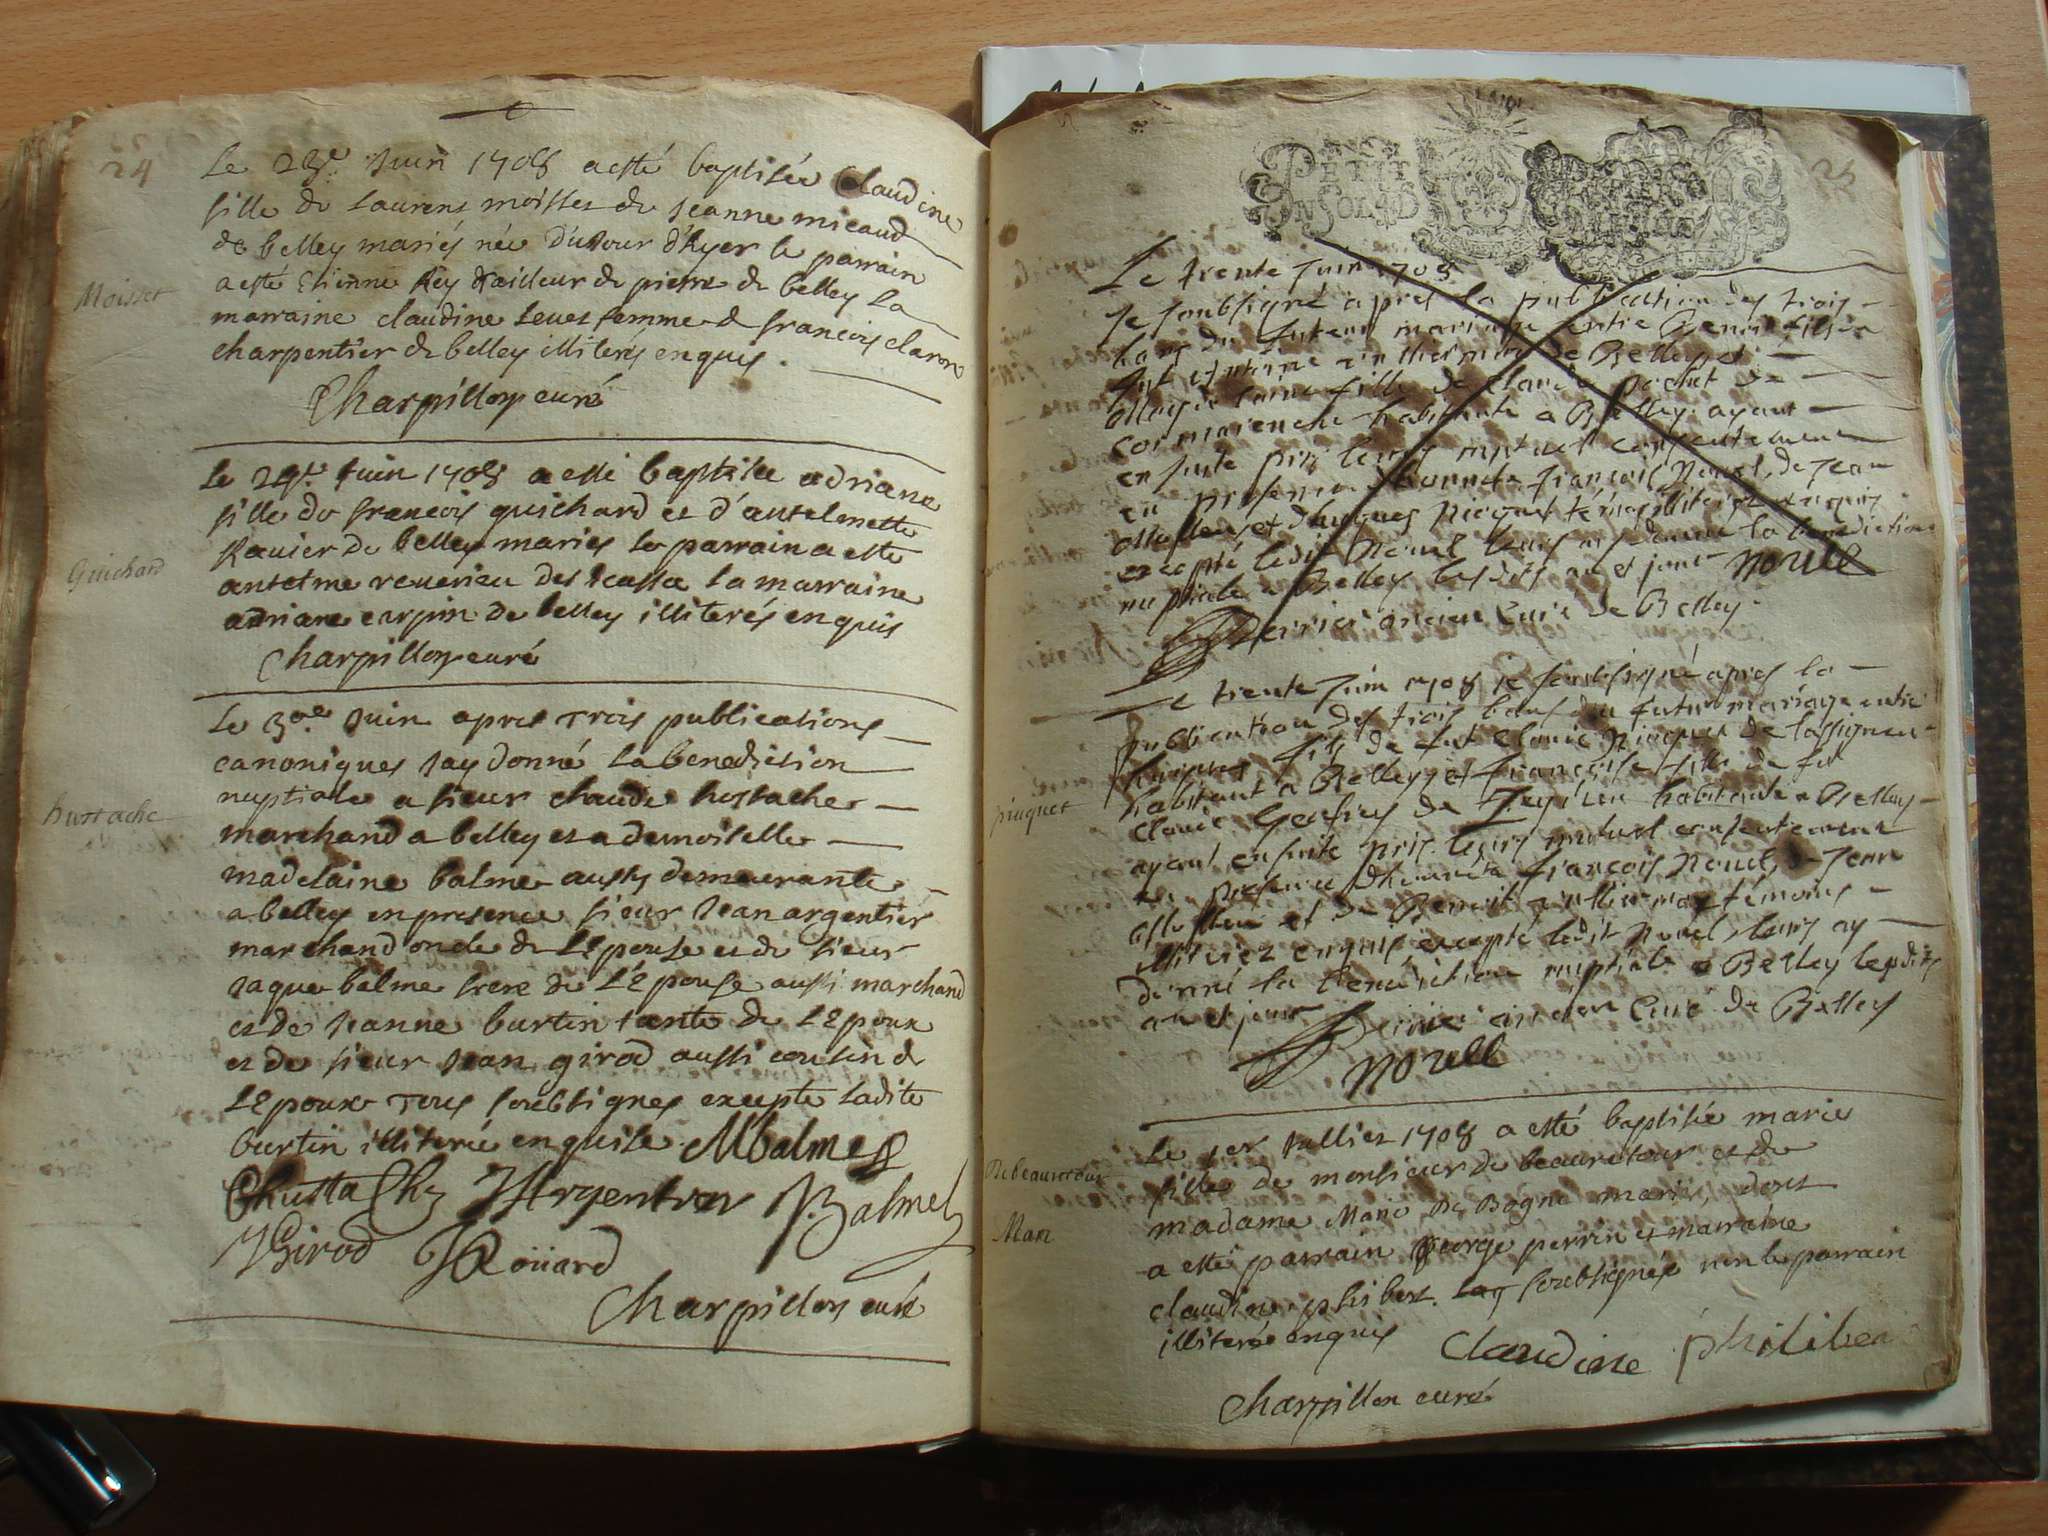 24
Le 28e Juin 1708 a esté baptisée Claudine
fille de Laurens moisset de Jeanne micaud
de belley mariés née du Jour d'hyer le parrain
a esté Etienne Rey tailleur de pierre de belley La
marraine claudine femme de francois claron
charpentier de belley illiterés enquis.
Charpillon curé
Moisset
Le 29e Juin 1708 a esté baptisée adriane
fille de francois guichard et d'antelmette
Rauier de belley mariés le parrain a esté
antelme reuerieu la marraine
adriane carpin de belley illiterés enquis
Charpillon curé
Guichard
Le 30e Juin apres Trois publications
canoniques Jay donné La benediction
nuptiale a sieur claude hustache
marchand a belley et a demoiselle
madelaine balme aussy demeurante
a belley en presence sieur Jean argentier
marchand oncle de L'Epouse et de sieur
Jaque balme frere de L'Epouse aussi marchand
et de Jeanne burtin tante de L'Epoux
et de sieur Jean girod aussi cousin de
L'Epoux Tous soubsignes excepte Ladite
burtin illiterée enquise MBalme
hustache
Chustache JArgentier J.Balme
JGirod JRoüard
Charpillon curé
25
PETIT
IN SOLS
Le trente Juin 1708
Je soubsigné apres la publication des trois
bans du futeur mariage entre Benoit fils a
fut Antoine de Belley et
fille de Claude pochet de
Cormarenche habitante a Belley ayant
ensuite pris leurs mutuel consentement
en presence d'honnete françois Nouel, de Jean
et d'hugues picquet témoins illiterez enquis
excepté ledit Nouel leurs ay donné la benediction
nuptiale a Belley lesdits an et jour Nouel
Perrier ancien Curé de Belley.
Le trente Juin 1708 je soubsigné apres la
publication des trois bans du futur mariage entre
hugues fils de fut Claude picquet de Lassignieu
habitant a Belley et françoise fille de fut
Claude de habitante a Belley
ayant ensuite pris leurs mutuel consentement
en presence d'honnete françois Nouel, de Jean
et de Benoit témoins
illiterez enquis, excepté ledit Nouel, leurs ay
donné la benediction nuptiale a Belley lesdits
an et jour Perrier ancien Curé de Belley
Nouel
piuquet
Le 1er Juillet 1708 a esté baptisée marie
fille de monsieur de beauretour et de
madame Marie De Bogne mariés, dont
a esté parrain George perrin et marraine
claudine phibert soubsignée non le parrain
illiteré enquis Claudine philiber
Charpillon curé
Debeauretour
Mari